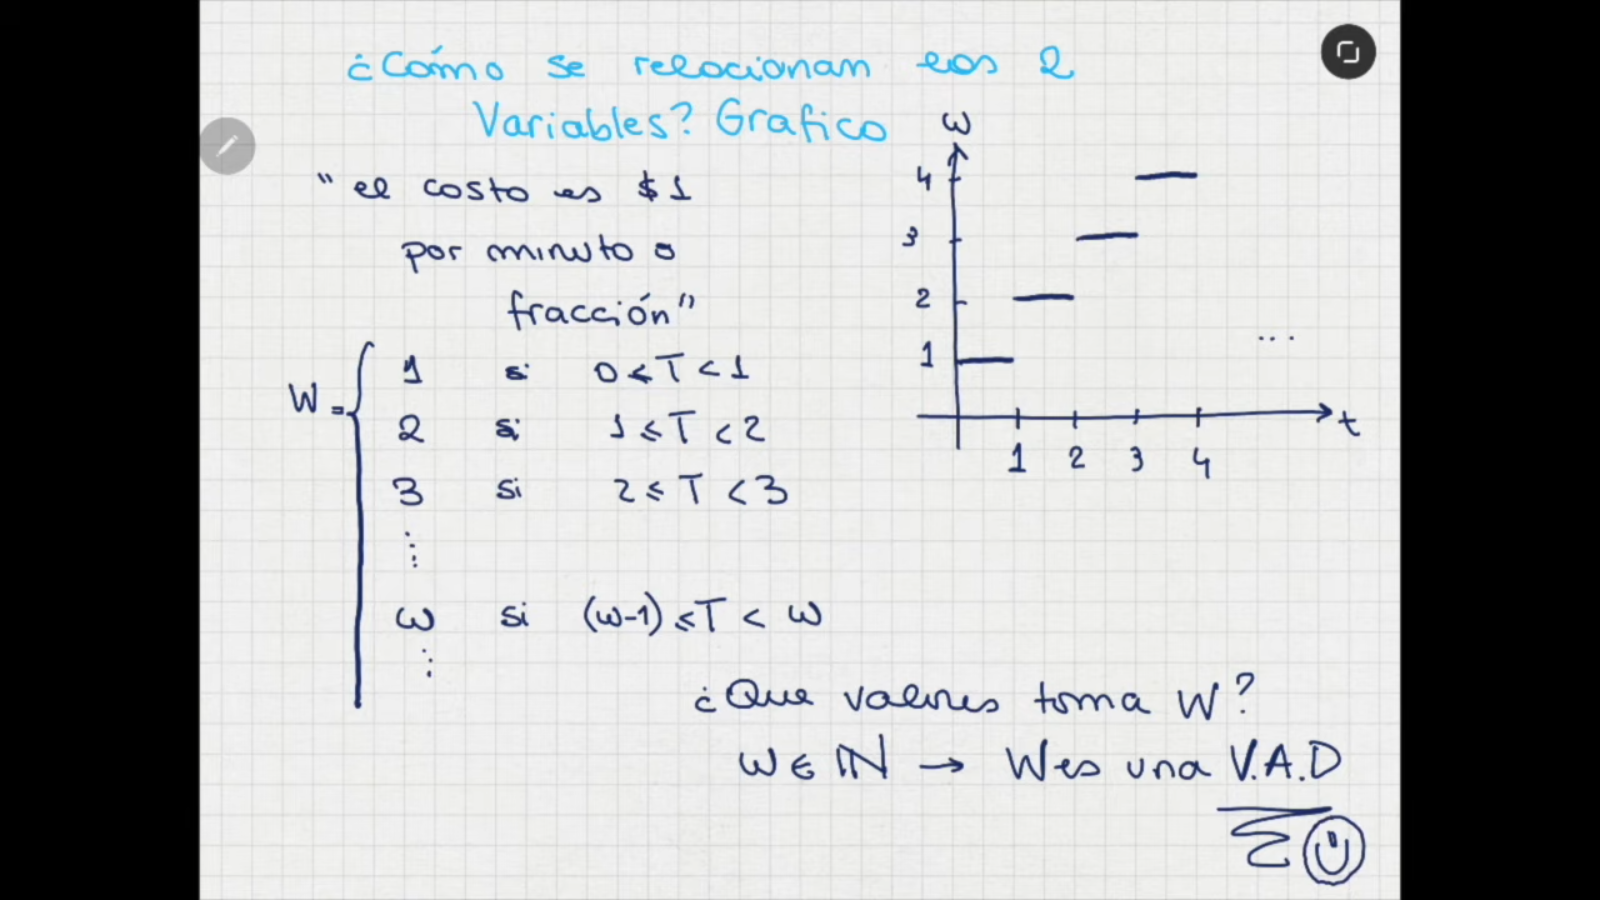 ¿Cómo se relacionan las 2
Variables? Grafico
"el costo es $1
por minuto o
fracción"
W = 1 si 0 ≤ T < 1
2 si 1 ≤ T < 2
3 si 2 ≤ T < 3
⋮
ω si (ω-1) ≤ T < ω
⋮
ω
4
3
2
1
...
t
1 2 3 4
¿Que valores toma W?
ω ∈ ℕ → W es una V.A.D